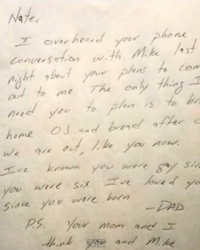 Nate,
I overheard your phone
conversation with Mike last
night about your plans to come
out to me. The only thing I
need you to plan is to br
home OJ and bread after c
we are out, like you now.
I've known you were gay sin
you were six. I've loved yo
since you were born
-DAD
P.S. Your mom and I
think you and Mike